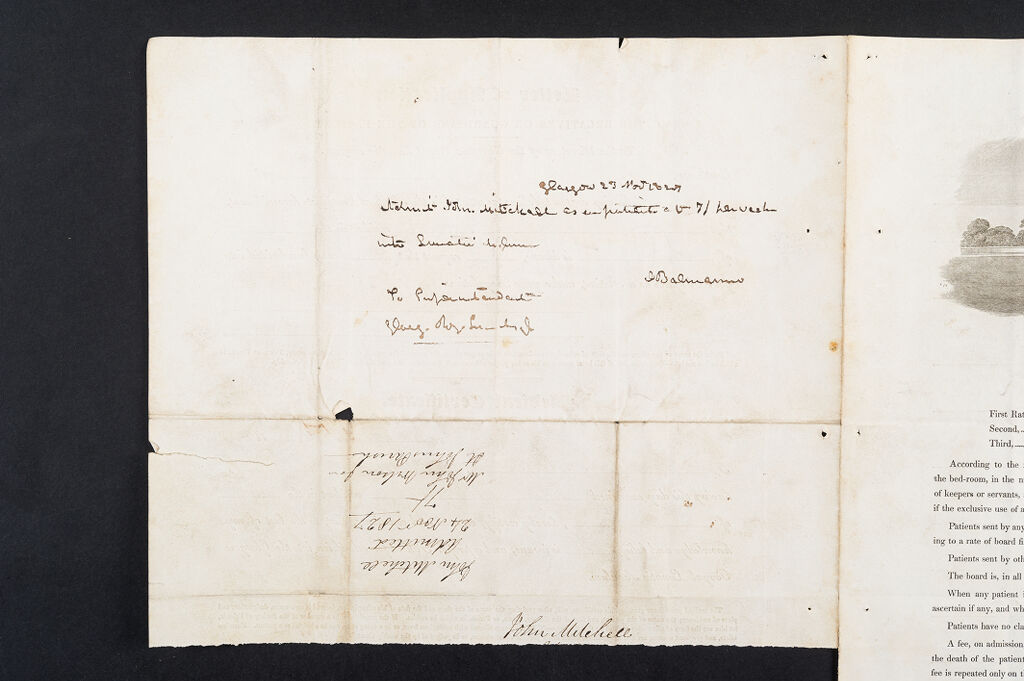 Glasgow 23 Novr 1827
Admit John Mitchell as a patient at 7/ per week
into Lunatic Asylum
J Balmanno
To Superintendant
Glasg. Roy. Lun. Asyl
John Mitchell
Admitted
24 Novr 1827
7/
Mr John Wilson for
St Johns Parish
John Mitchell
First Rat
Second,
Third,
According to the
the bed-room, in the n
of keepers or servants,
if the exclusive use of a
Patients sent by any
ing to a rate of board fi
Patients sent by oth
The board is, in all
When any patient i
ascertain if any, and wh
Patients have no cla
A fee, on admission,
the death of the patient
fee is repeated only on t